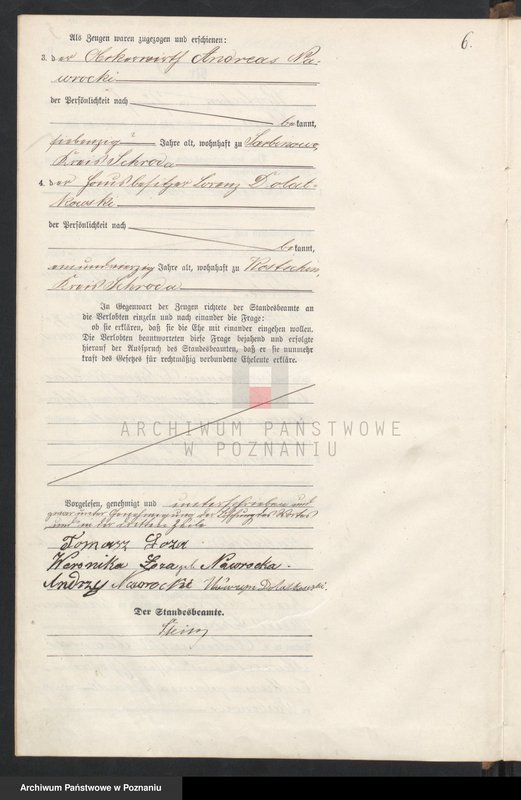 6.
Als Zeugen waren zugezogen und erschienen:
3. der Ackerwirth Andreas Na-
wrocki
der Persönlichkeit nach
bekannt,
siebenzig Jahre alt, wohnhaft zu
Kreis Schroda
4. der Hausbesitzer Lorenz Dolat-
kowski
der Persönlichkeit nach
bekannt,
einundvierzig Jahre alt, wohnhaft zu Kostschin,
Kreis Schroda
In Gegenwart der Zeugen richtete der Standesbeamte an
die Verlobten einzeln und nach einander die Frage:
ob sie erklären, daß sie die Ehe mit einander eingehen wollen.
Die Verlobten beantworteten diese Frage bejahend und erfolgte
hierauf der Ausspruch des Standesbeamten, daß er sie nunmehr
kraft des Gesetzes für rechtmäßig verbundene Eheleute erkläre.
ARCHIWUM PAŃSTWOWE
W POZNANIU
Vorgelesen, genehmigt und unterschrieben und
zwar unter Genehmigung der Löschung des Wortes
und in der dritten Zeile
Tomasz Łoza
Weronika Łoza geb Nawrocka.
Andrzy Nawrocki Dolatkowski.
Der Standesbeamte.
Archiwum Państwowe w Poznaniu